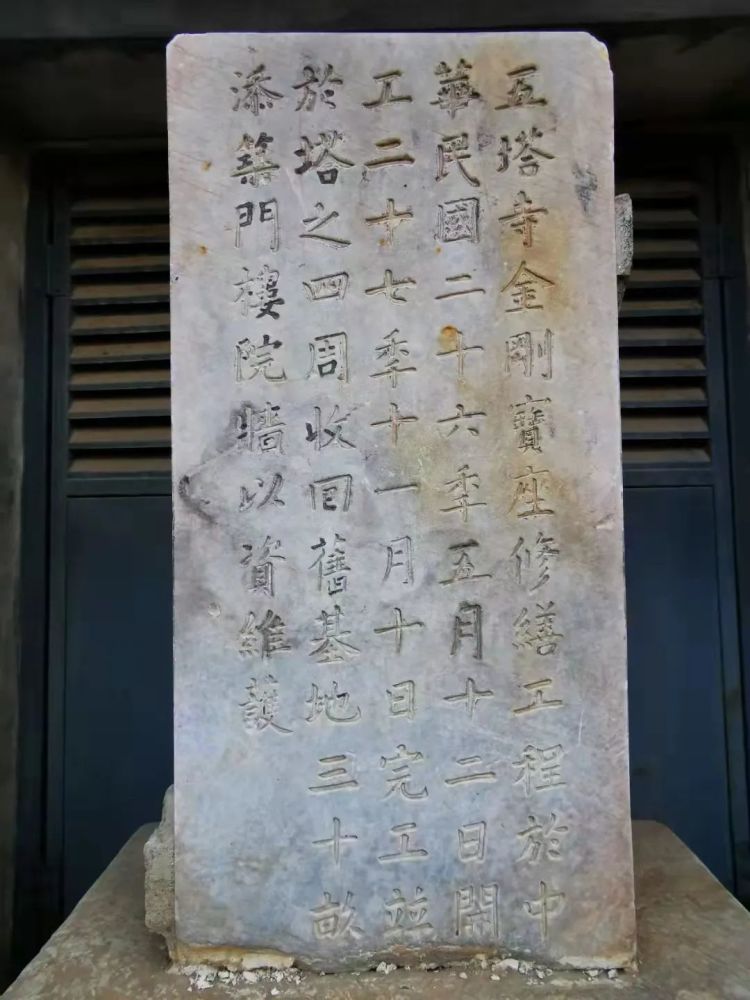 五塔寺金剛寶座修繕工程於中
華民國二十六秊五月十二日開
工二十七秊十一月十日完工並
於塔之四周收回舊基地三十畝
添築門樓院牆以資維護